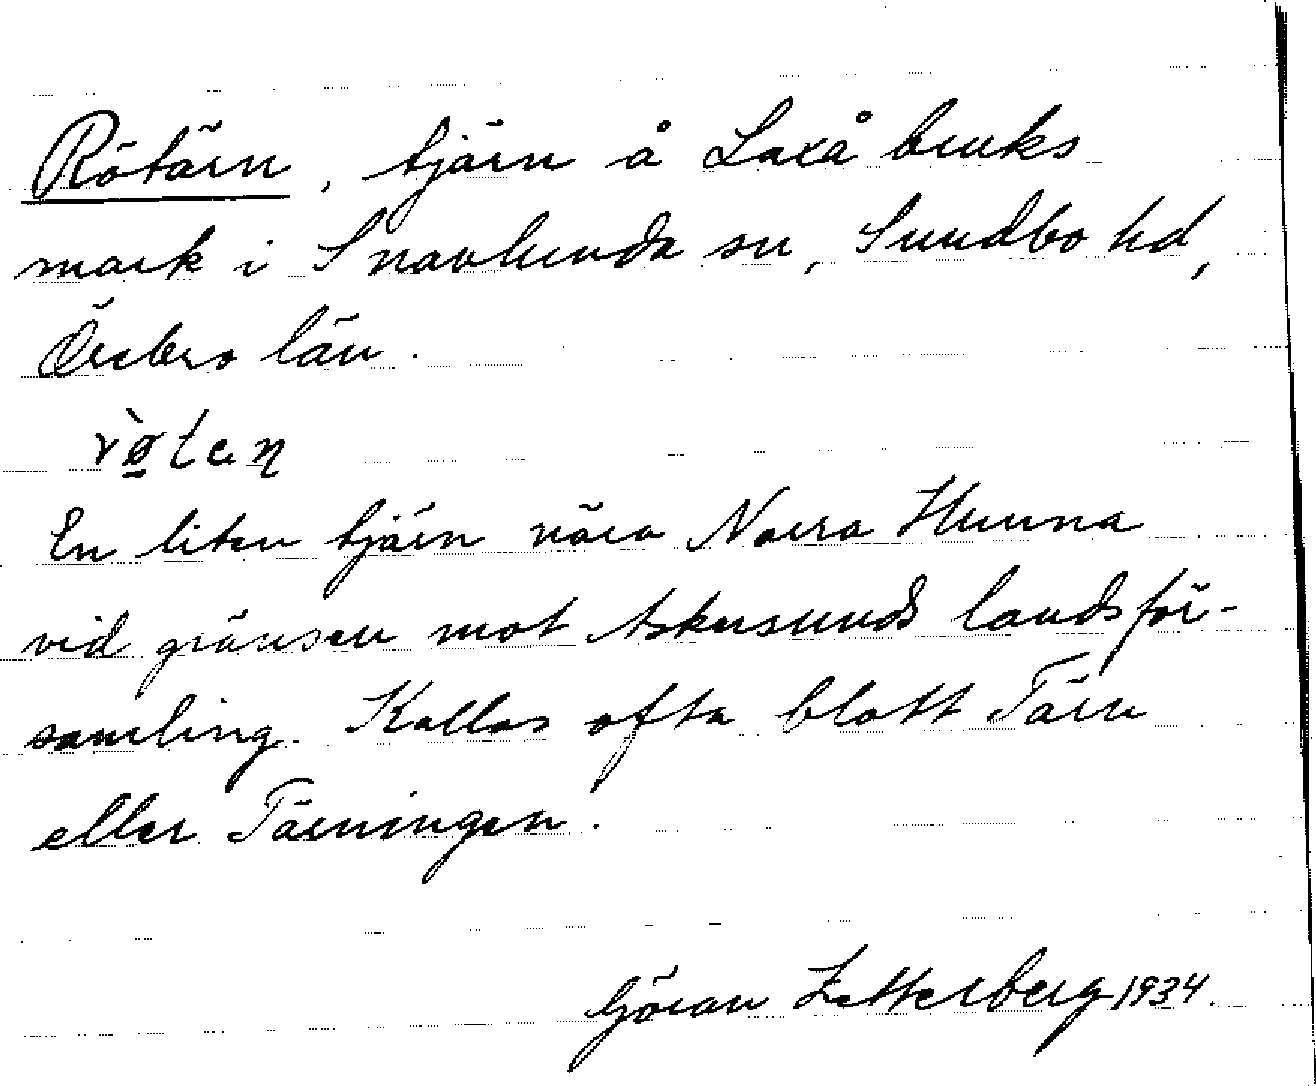 Rötärn, tjärn å Laxå bruks
mark i Snavlunda sn, Sundbo hd,
Örebro län.
rø̀tan
En liten tjärn nära Norra Hunna
vid gränsen mot Askersunds landsför-
samling. Kallas ofta blott Tärn
eller Tärningen.
Göran Zetterberg 1934.